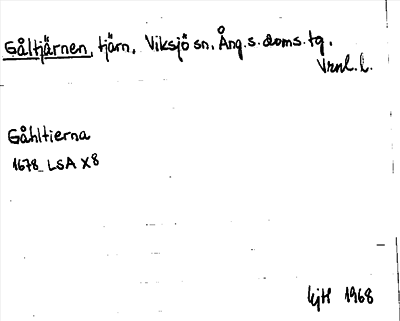 Gåltjärnen, tjärn, Viksjö sn, Ång. s. doms. tg.
Vrnl. l.
Gåhltierna
1678 LSA X8
kjH 1968